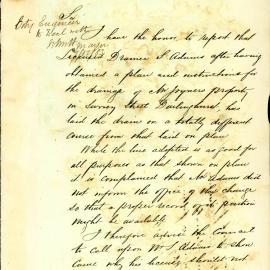 City Engineer
Sir
I have the honor to report that
Licensed Drainer S. Adams after having
obtained a plan and instructions for
the drainage of Mr Joyners property
in Surrey Street Darlinghurst, has
laid the drain on a totally different
course from that laid on plan
While the line adopted is as good for
all purposes as that shown on plan
it is complained that Mr Adams did
not inform the office of this change
so that a proper record of its position
might be available
I therefore advise the Council
to call upon Mr S Adams to show
cause why his license should not